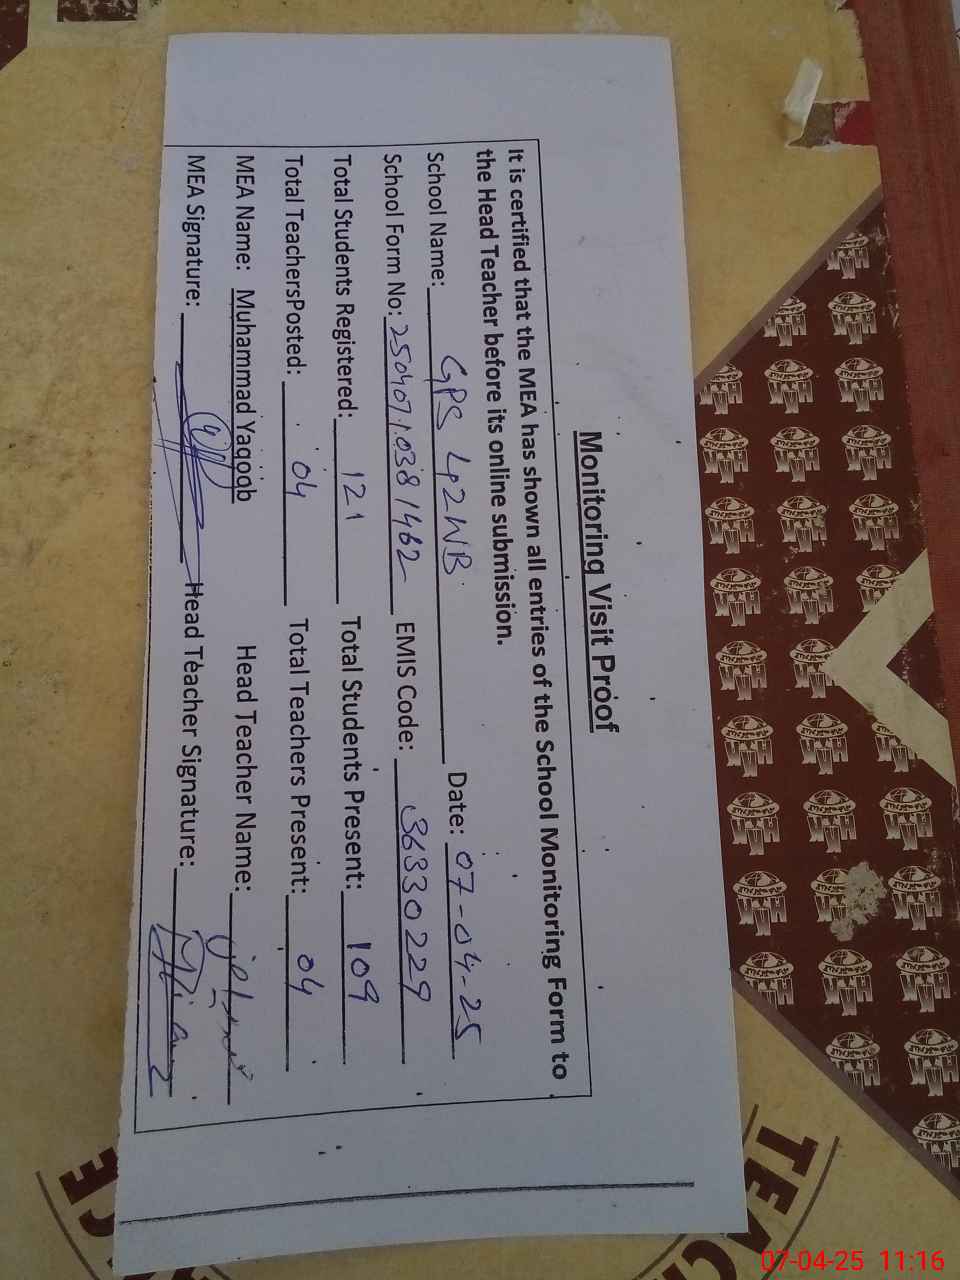 Monitoring Visit Proof
It is certified that the MEA has shown all entries of the School Monitoring Form to
the Head Teacher before its online submission.
School Name: GPS 42WB Date: 07-04-25
School Form No: 250407.0381462 EMIS Code: 36330229
Total Students Registered: 121 Total Students Present: 109
Total TeachersPosted: 04 Total Teachers Present: 04
MEA Name: Muhammad Yaqoob Head Teacher Name:
MEA Signature: Head Teacher Signature:
07-04-25 11:16